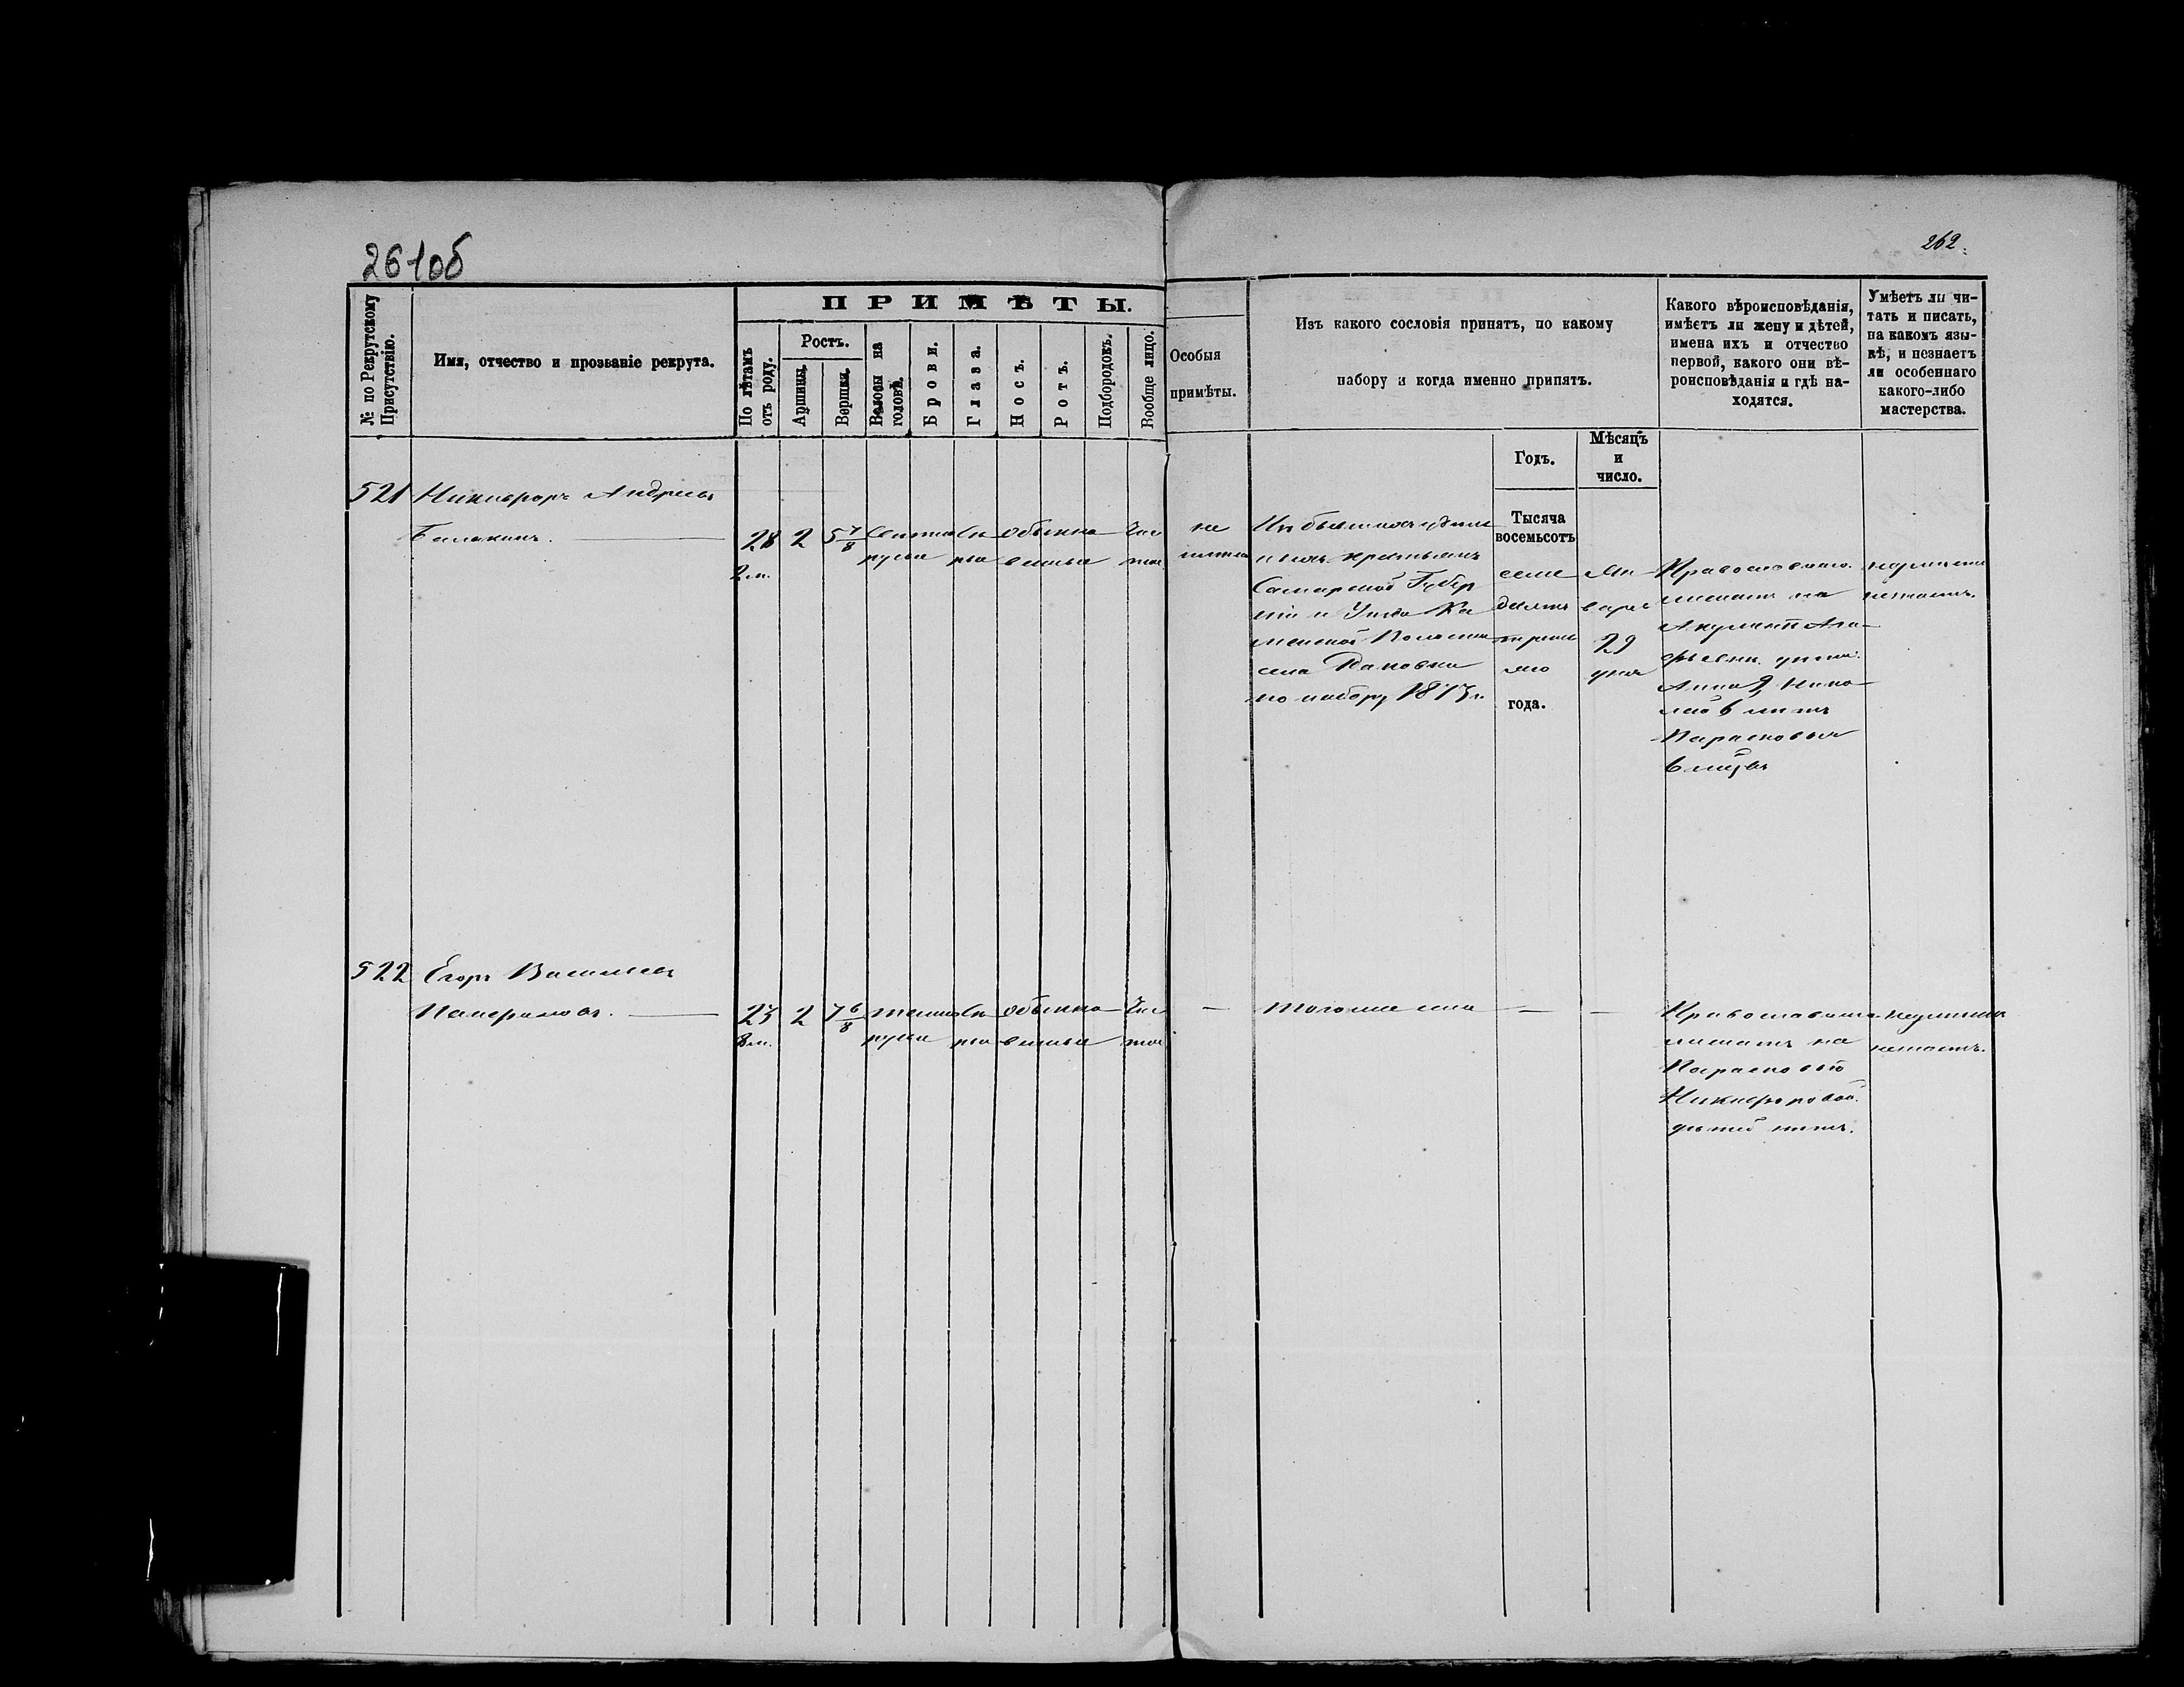 261об
262.
№ по Рекрутскому Присутствію.
Имя, отчество и прозваніе рекрута.
ПРИМѢТЫ.
По лѣтамъ отъ роду.
Ростъ.
Аршины.
Вершки.
Волосы на головѣ.
Брови.
Глаза.
Носъ.
Ротъ.
Подбородокъ.
Вообще лицо.
Особыя
примѣты.
Изъ какого сословія принятъ, по какому
набору и когда именно принятъ.
Годъ.
Мѣсяцъ
и
число.
Какого вѣроисповѣданія,
имѣетъ ли жену и дѣтей,
имена ихъ и отчество
первой, какого они вѣ-
роисповѣданія и гдѣ на-
ходятся.
Умѣетъ ли чи-
тать и писать,
на какомъ язы-
кѣ, и незнаетъ
ли особеннаго
какого-либо
мастерства.
521 Никифоръ Андреевъ
Балакинъ.
28
2 м.
2
5 7/8
Свѣтло
русые
Сѣ
рые
обыкно
венные
Чис
тое
не
имѣетъ
Изъ бывшихъ удѣль
ныхъ крестьянъ
Самарской Губер
ніи и Уѣзда Ка
менской Волости
села
по набору 1873 г.
Тысяча
восемьсотъ
семь
десятъ
третья
го
года.
Ян
варя
29
дня
Православнаго
женатъ на
Акулинѣ Ага-
фьевн. дѣти:
Анна 9, Нико-
лай 6 лѣтъ
Парасковья
6 мѣс.
неумѣетъ
незнаетъ.
522 Егоръ Васильевъ
23
8 м.
2
7 6/8
темно
русые
Сѣ
рые
обыкно
венные
Чис
тое
—
Того же села
—
—
Православнаго
женатъ на
Парасковьѣ
Никифоровой.
дѣтей нѣтъ.
неумѣетъ
незнаетъ.